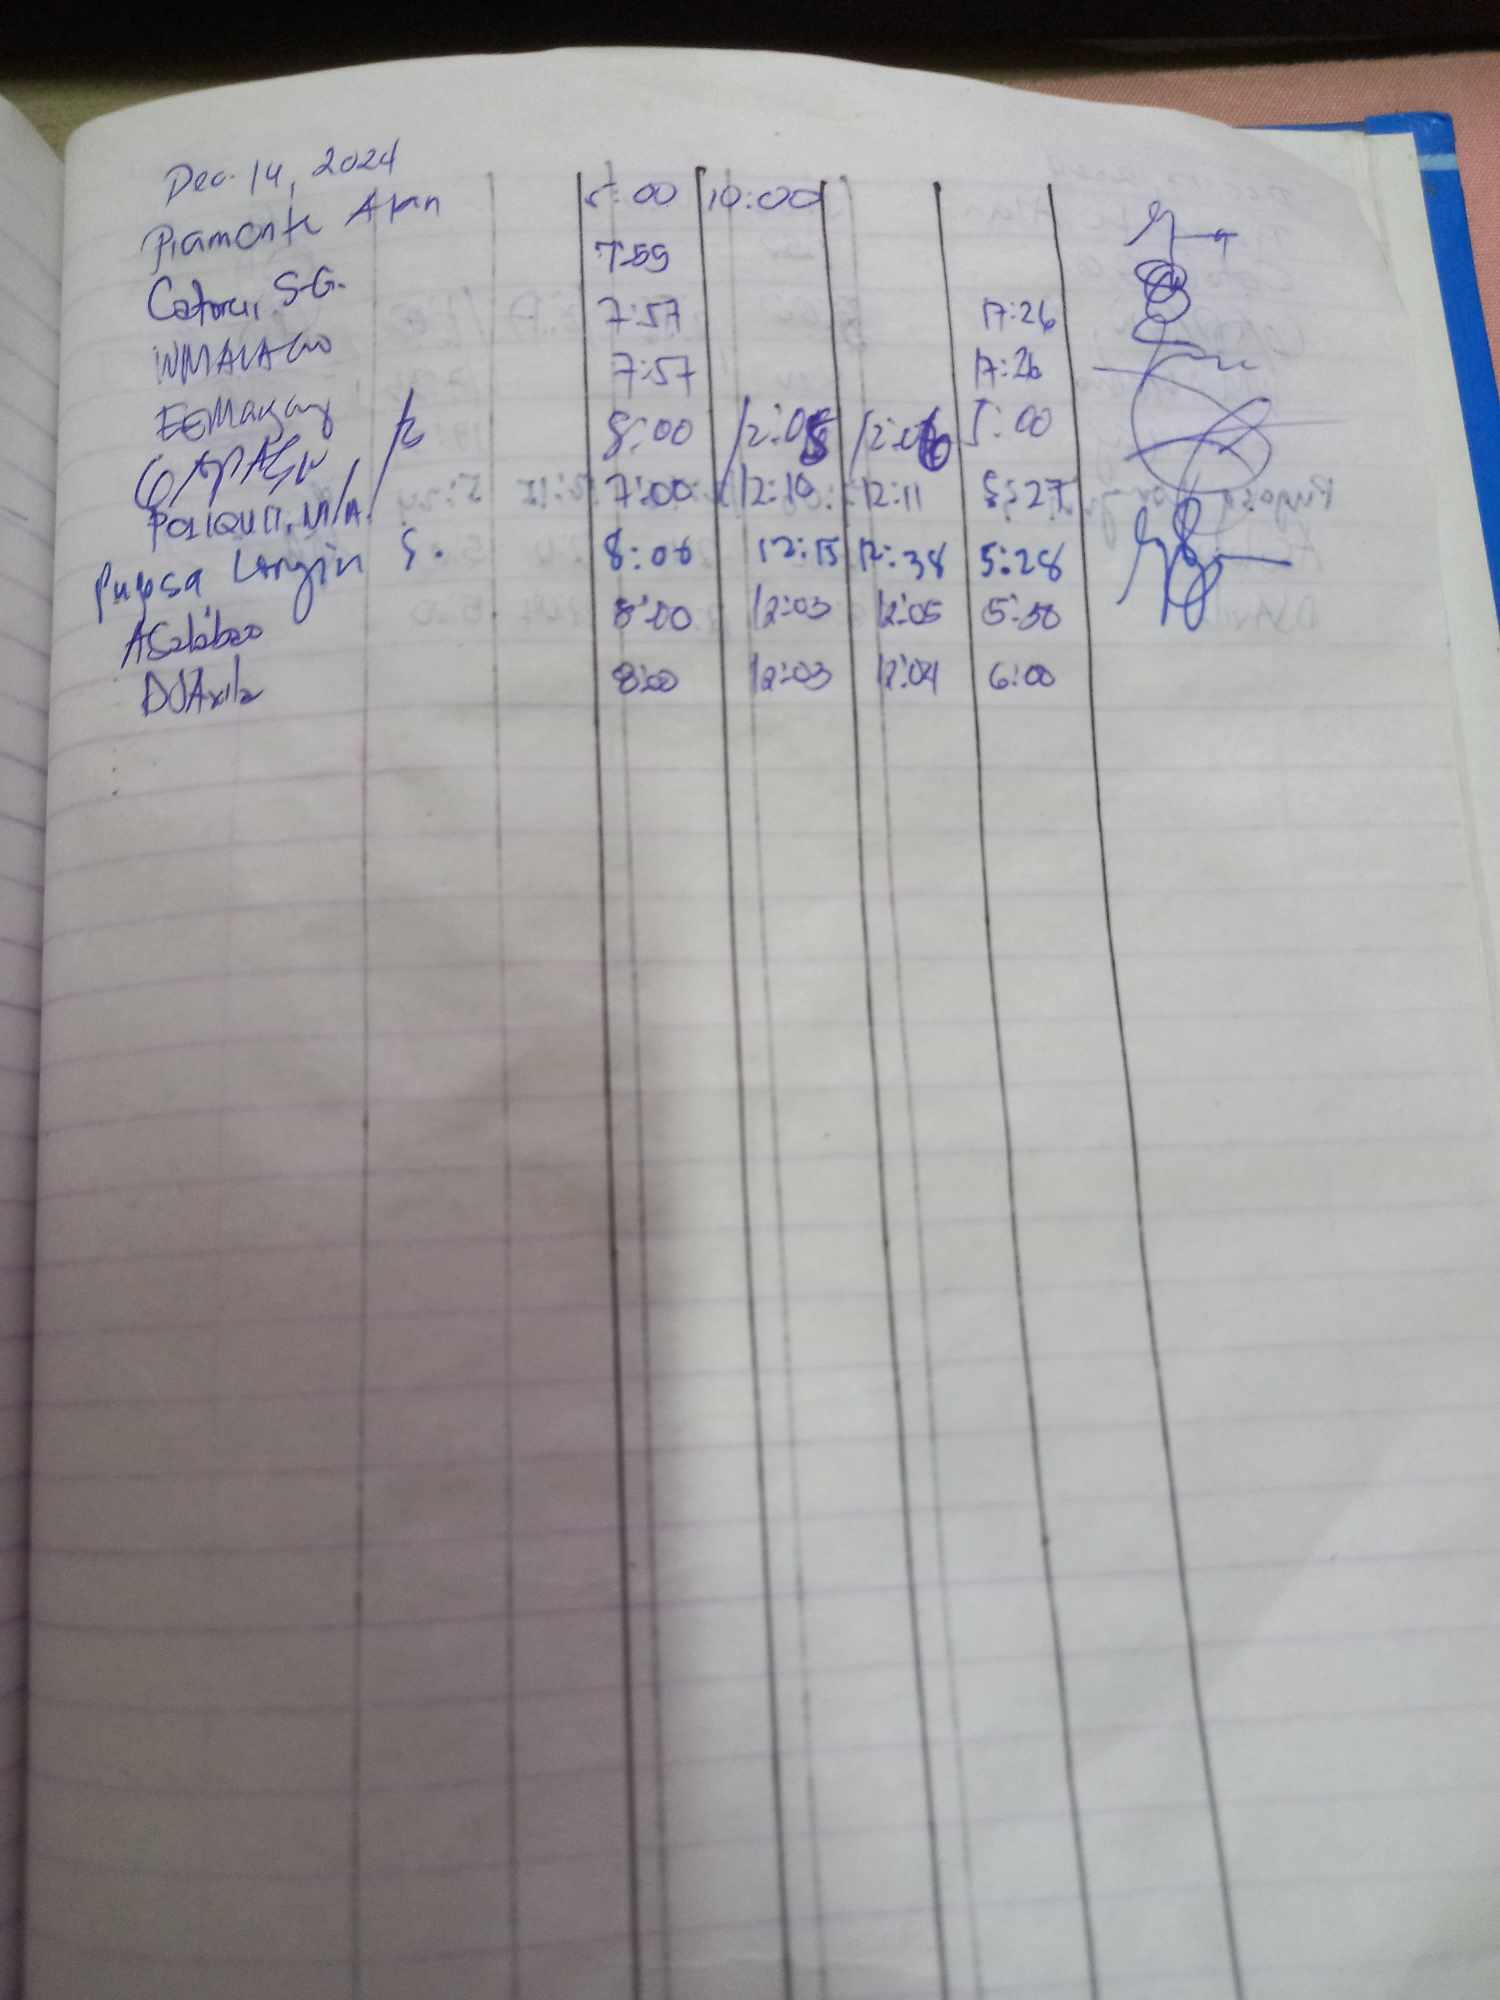 Dec. 14, 2024
Piamonte Alan 5:00 10:00
Catoru, S.G. 7:59
WMALACAO 7:57 17:26
EGMagany 7:57 17:26
8:00 12:05 12:06 5:00
POLIQUIT, M/A. 7:00 12:10 12:11 5:27
Puyosa Longin S. 8:06 12:15 12:38 5:28
ASalabao 8:00 12:03 12:05 5:30
DJAvila 8:00 12:03 12:04 6:00